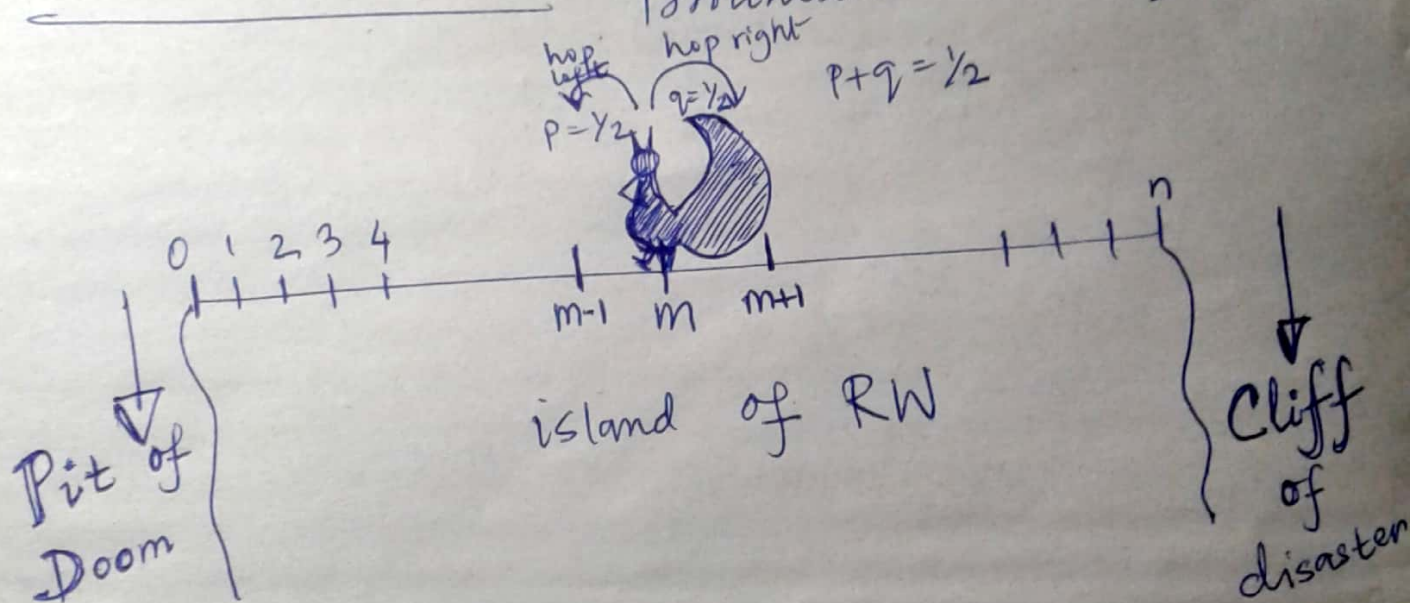 hop
left
hop right
p = 1/2
q = 1/2
p+q = 1/2
0 1 2 3 4
n
m-1 m m+1
island of RW
Pit of
Doom
Cliff
of
disaster